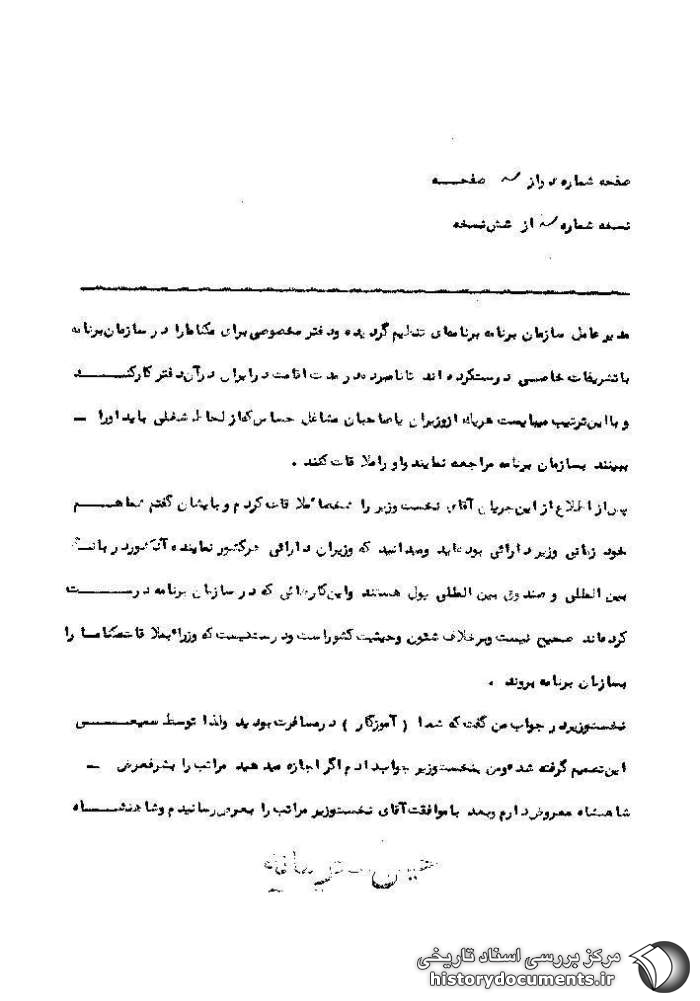 صفحه شماره دو از سه صفحـــه
نسخه شماره از شش نسخه
مدیر عامل سازمان برنامه برنامه‌ای تنظیم گردیده و دفتر مخصوصی برای مکنامارا در سازمان برنامه
با تشریفات خاصی درست کرده اند تا نامبرده در مدت اقامت در ایران در آن دفتر کار کنـــــد
و با این ترتیب میبایست هریک از وزیران یا صاحبان مشاغل حساس که از لحاظ شغلی باید او را ـ
ببینند بسازمان برنامه مراجعه نمایند و او را ملاقات کنند .
پس از اطلاع از این جریان آقای نخست وزیر را شخصا ملاقات کردم و بایشان گفتم شما هـــم
خود زمانی وزیر دارائی بوده‌اید و میدانید که وزیران دارائی هر کشور نماینده آن کشور در بانک
بین المللی و صندوق بین المللی پول هستند و این کارهائی که در سازمان برنامه درســـــت
کرده‌اند صحیح نیست و بر خلاف شئون و حیثیت کشور است و درست نیست که وزراء بملاقات مکنامارا
بسازمان برنامه بروند .
نخست وزیر در جواب من گفت که شما ( آموزگار ) در مسافرت بودید و لذا توسط سمیعـــــی
این تصمیم گرفته شده و من بنخست وزیر جواب دادم اگر اجازه میدهید مراتب را بشرفعرض ـ
شاهنشاه معروض دارم و بعد با موافقت آقای نخست وزیر مراتب را بعرض رسانیدم و شاهنشـــاه
مرکز بررسی اسناد تاریخی
historydocuments.ir